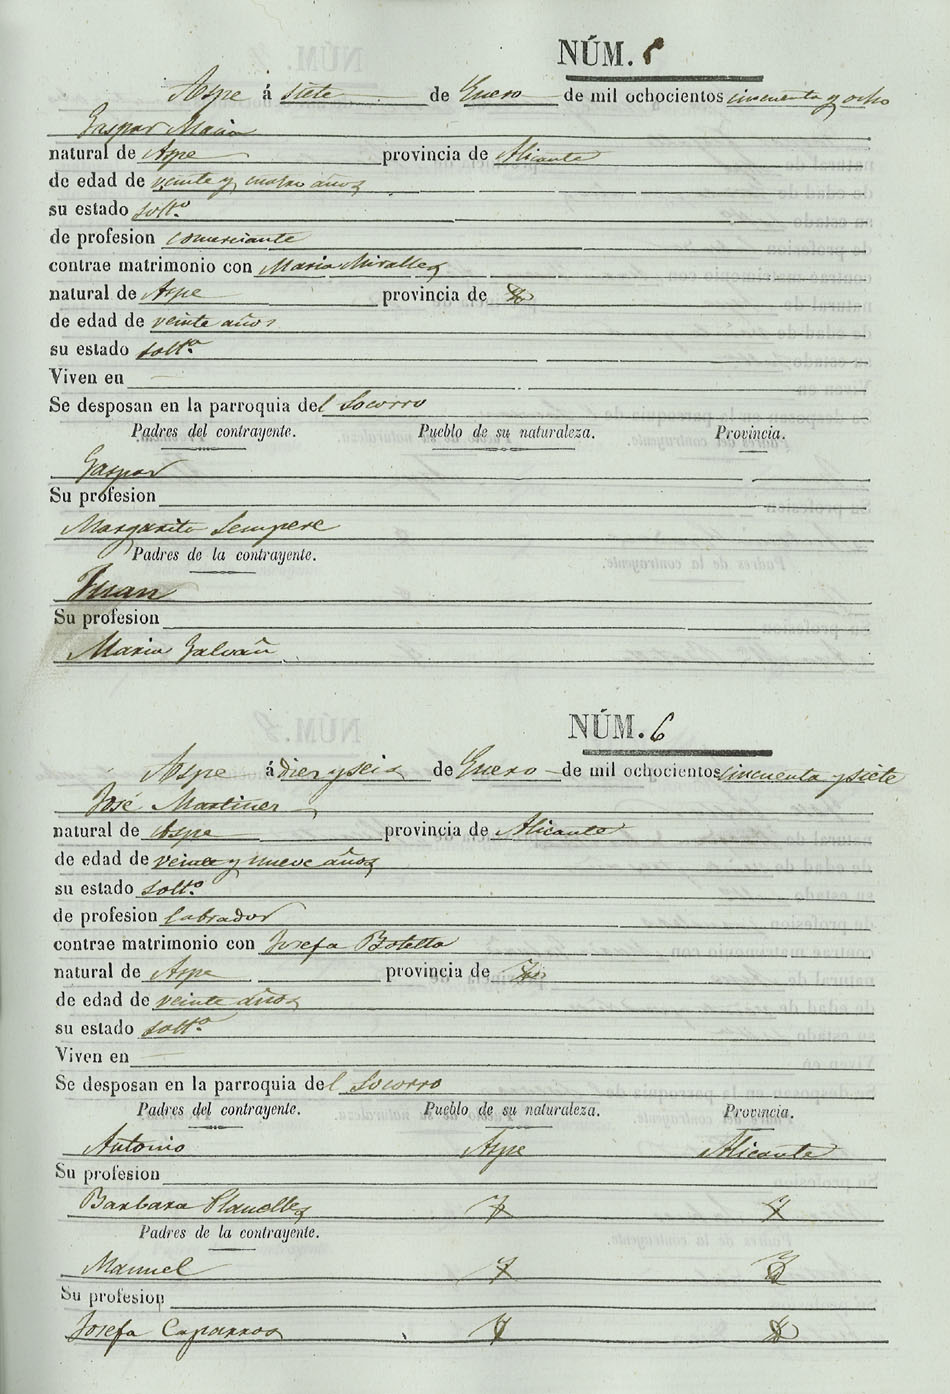 NÚM. 5
Aspe á siete de Enero de mil ochocientos cincuenta y ocho
Gaspar Maria
natural de Aspe provincia de Alicante
de edad de veinte y cuatro años
su estado solt.º
de profesion comerciante
contrae matrimonio con Maria Miralles
natural de Aspe provincia de
de edad de veinte años
su estado solt.ª
Viven en
Se desposan en la parroquia del Socorro
Padres del contrayente. Pueblo de su naturaleza. Provincia.
Gaspar
Su profesion
Margarita Sempere
Padres de la contrayente.
Juan
Su profesion
Maria Galvañ
NÚM. 6
Aspe á diez y seis de Enero de mil ochocientos cincuenta y siete
José Martinez
natural de Aspe provincia de Alicante
de edad de veinte y nueve años
su estado solt.º
de profesion labrador
contrae matrimonio con Josefa Botella
natural de Aspe provincia de
de edad de veinte años
su estado solt.ª
Viven en
Se desposan en la parroquia del Socorro
Padres del contrayente. Pueblo de su naturaleza. Provincia.
Antonio Aspe Alicante
Su profesion
Barbara Planelles
Padres de la contrayente.
Manuel
Su profesion
Josefa Caparros